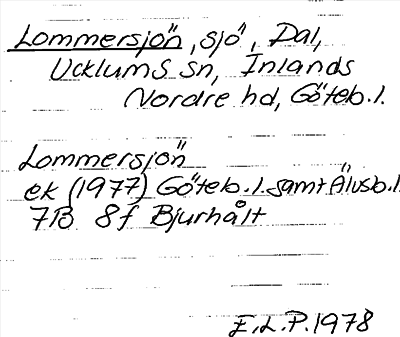 Lommersjön, sjö, Dal,
Ucklums sn, Inlands
Nordre hd, Göteb.l.
Lommersjön
ek (1977) Göteb.l. samt Älvsb.l.
7B 8f Bjurhålt
E.L.P. 1978